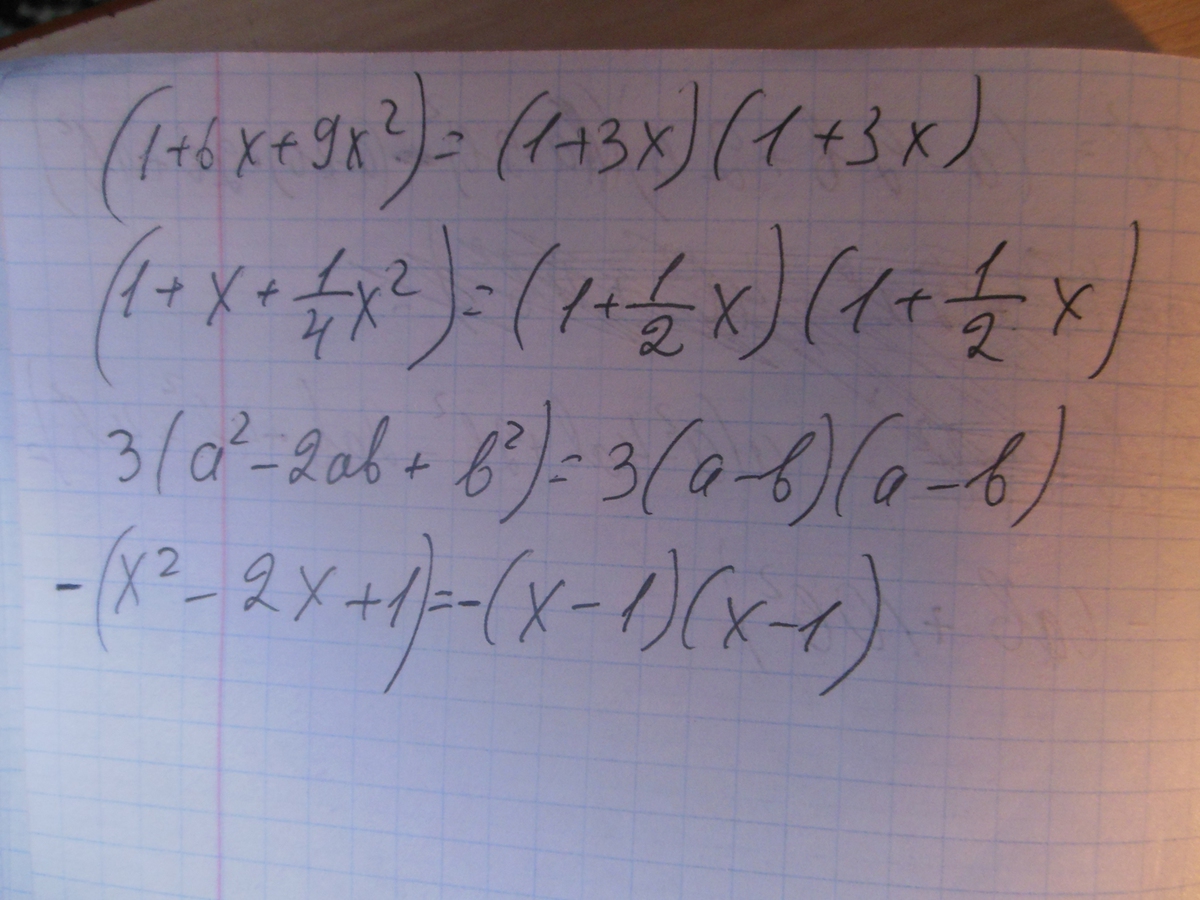 (1+6x+9x²)=(1+3x)(1+3x)
(1+x+1/4x²)=(1+1/2x)(1+1/2x)
3(a²-2ab+b²)=3(a-b)(a-b)
-(x²-2x+1)=-(x-1)(x-1)